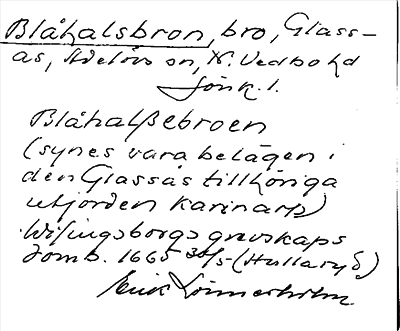 Blåhalsbron, bro, Glass-
ås, Adelövs sn, N. Vedbo hd
Jönk. l.
Blåhalßebroen
(synes vara belägen i
den Glassås tillhöriga
utjorden Karinarp)
Wisingsborgs grevskaps
Jomb. 1665 30/5 (Hullaryd)
Erik Lönnerholm